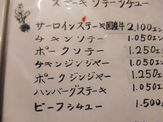 ステーキ ソテー シチュー
サーロインステーキ国産牛 2,100円
チキンソテー 1.050円
ポークソテー 1.250円
チキンジンジャー 1.050円
ポークジンジャー 1.250円
ハンバーグステーキ 1.050
ビーフシチュー 1.500